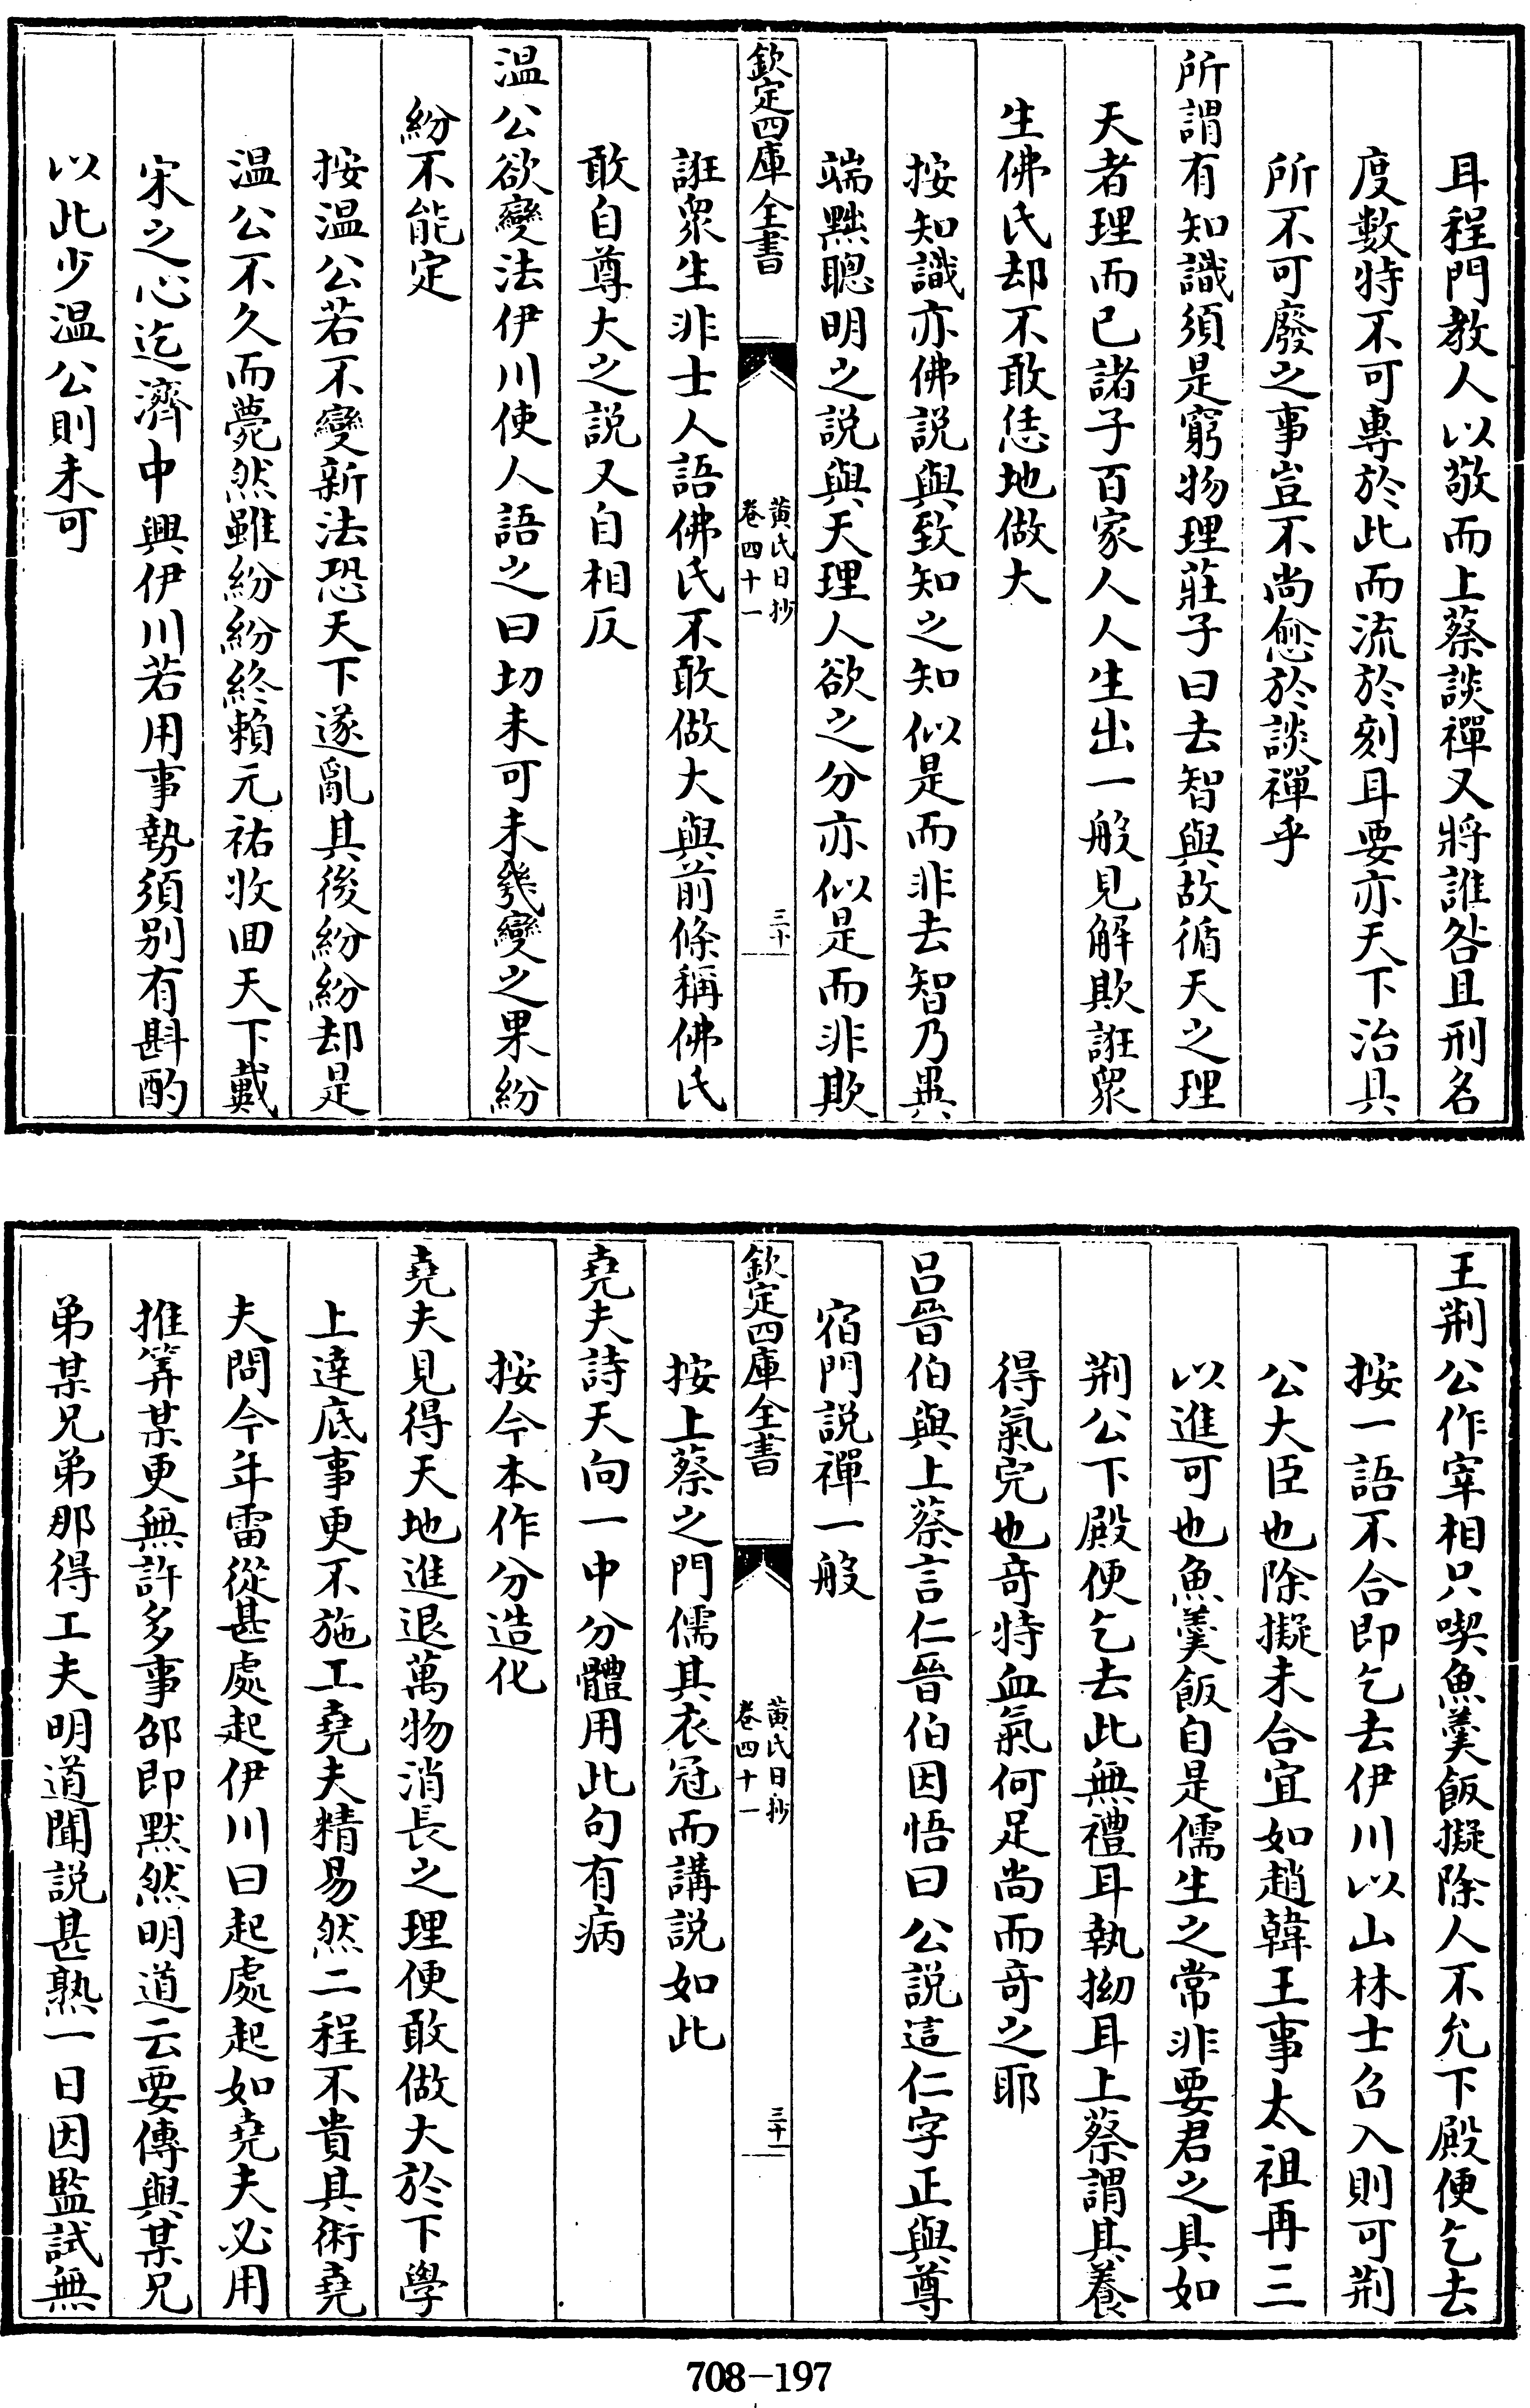 耳程門教人以敬而上蔡談禪又將誰咎且刑名
度數特不可專於此而流於刻耳要亦天下治具
所不可廢之事豈不尚愈於談禪乎
所謂有知識須是窮物理莊子曰去智與故循天之理
天者理而已諸子百家人人生出一般見解欺誑衆
生佛氏却不敢恁地做大
按知識亦佛說與致知之知似是而非去智乃異
端黜聰明之説與天理人欲之分亦似是而非欺
欽定四庫全書
黄氏日抄
卷四十一
三十
誑衆生非士人語佛氏不敢做大與前條稱佛氏
敢自尊大之説又自相反
温公欲變法伊川使人語之曰切未可未幾變之果紛
紛不能定
按温公若不變新法恐天下遂亂其後紛紛却是
温公不久而薨然雖紛紛終賴元祐收囬天下戴
宋之心迄濟中興伊川若用事勢須别有斟酌
以此少温公則未可
王荆公作宰相只喫魚羮飯擬除人不允下殿便乞去
按一語不合即乞去伊川以山林士召入則可荆
公大臣也除擬未合宜如趙韓王事太祖再三
以進可也魚羮飯自是儒生之常非要君之具如
荆公下殿便乞去此無禮耳執拗耳上蔡謂其養
得氣完也竒特血氣何足尚而竒之耶
吕晉伯與上蔡言仁晉伯因悟曰公説這仁字正與尊
宿門説禪一般
欽定四庫全書
黄氏日抄
卷四十一
三十一
按上蔡之門儒其衣冠而講説如此
堯夫詩天向一中分體用此句有病
按今本作分造化
堯夫見得天地進退萬物消長之理便敢做大於下學
上達底事更不施工堯夫精易然二程不貴其術堯
夫問今年雷從甚處起伊川曰起處起如堯夫必用
推筭某更無許多事邵即默然明道云要傳與某兄
弟某兄弟那得工夫明道聞説甚熟一日因監試無
708-197